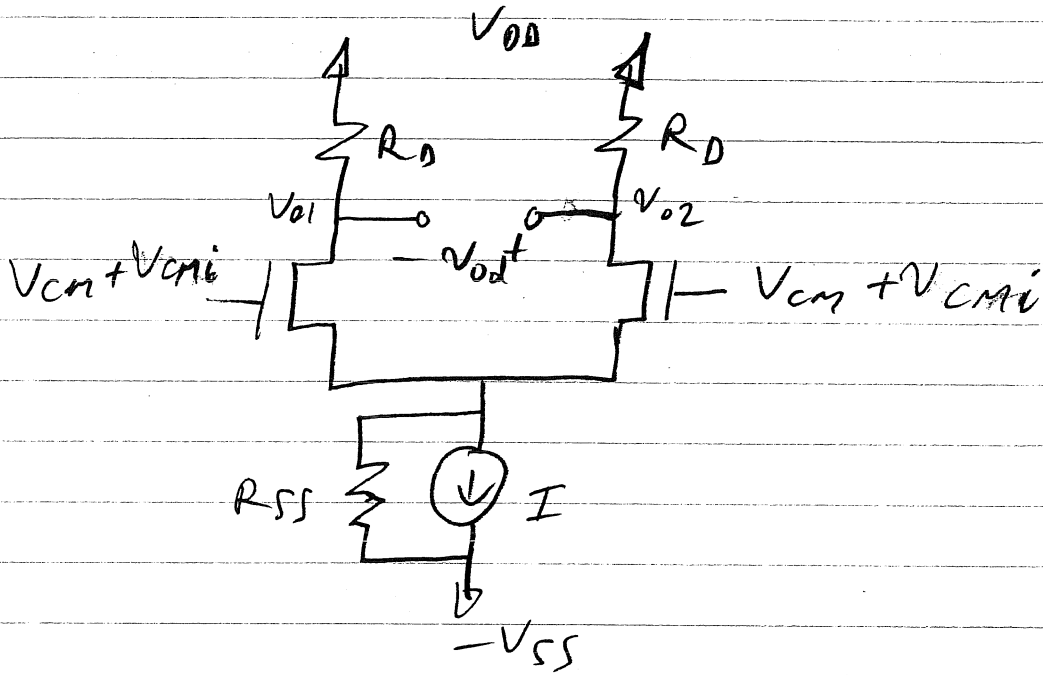 V_DD
R_D R_D
v_o1 v_o2
− v_od +
V_CM + v_CMi V_CM + v_CMi
R_SS I
−V_SS